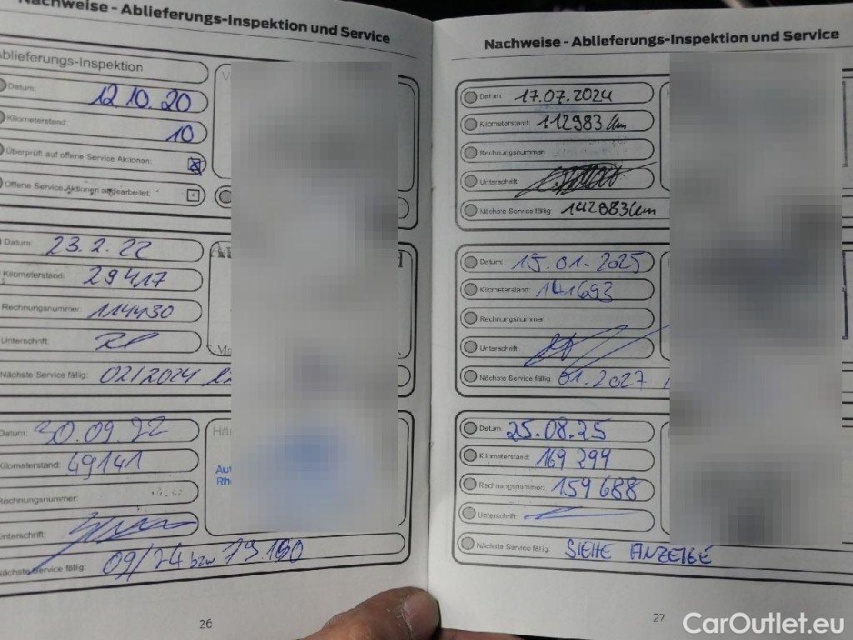 Nachweise - Ablieferungs-Inspektion und Service
Ablieferungs-Inspektion
Datum: 12.10.20
Kilometerstand: 10
Überprüft auf offene Service Aktionen: ☒
Offene Service Aktionen abgearbeitet:
Datum: 23.2.22
Kilometerstand: 29417
Rechnungsnummer: 114430
Unterschrift:
Nächste Service fällig: 02/2024
Datum: 30.09.22
Kilometerstand: 49141
Rechnungsnummer:
Unterschrift:
Nächste Service fällig: 09/24 bzw 79.160
Hä
Aut
Rhe
26
Nachweise - Ablieferungs-Inspektion und Service
Datum: 17.07.2024
Kilometerstand: 112983 km
Rechnungsnummer
Unterschrift
Nächste Service fällig: 142983 km
Datum: 15.01.2025
Kilometerstand: 141693
Rechnungsnummer
Unterschrift
Nächste Service fällig: 01.2027
Datum: 25.08.25
Kilometerstand: 169 299
Rechnungsnummer: 159688
Unterschrift:
Nächste Service fällig: SIEHE ANZEIGE
27
CarOutlet.eu